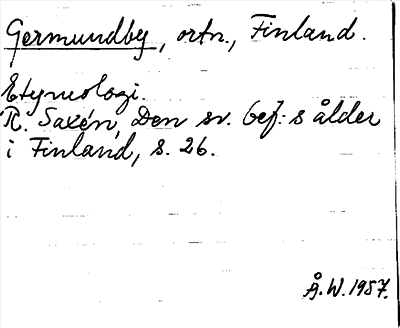 Germundby, ortn., Finland.
Etymologi.
R. Saxén, Den sv. bef:s ålder
i Finland, s. 26.
Å.W.1957.